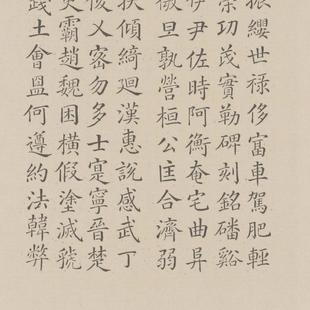 振纓世禄侈富車駕肥輕
策功茂實勒碑刻銘磻谿
伊尹佐時阿衡奄宅曲阜
微旦孰營桓公匡合濟弱
扶傾綺迴漢惠說感武丁
俊乂密勿多士寔寧晉楚
更霸趙魏困橫假塗滅虢
踐土會盟何遵約法韓弊